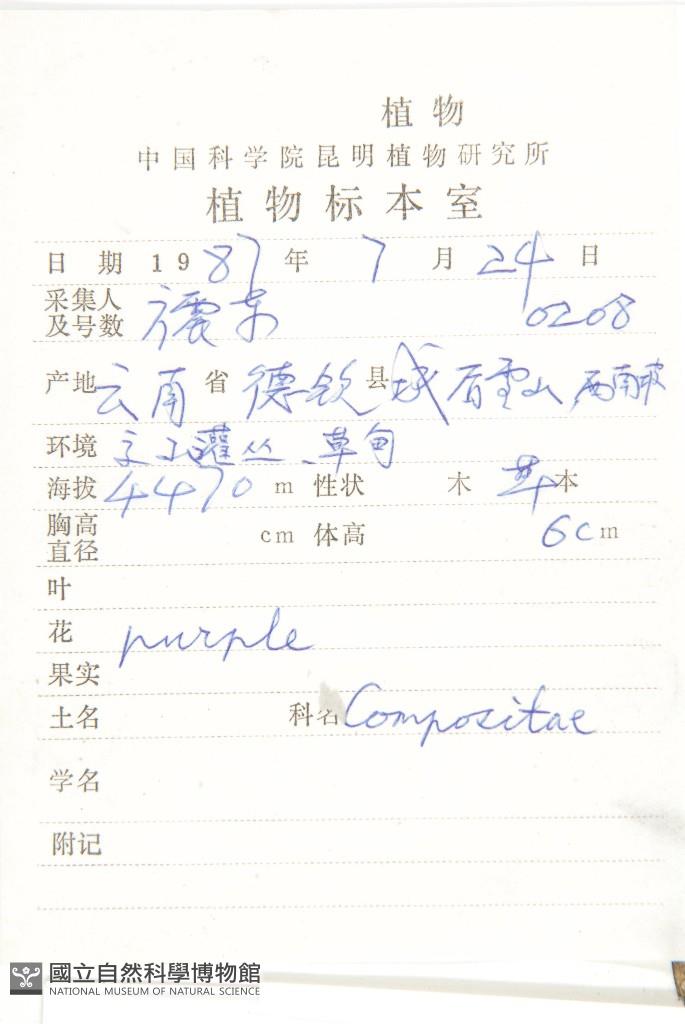 植物
中国科学院昆明植物研究所
植物标本室
日期 1987年 7月 24日
采集人及号数 震东 0208
产地 云南省 德钦县 石雪山西南坡
环境 灌丛、草甸
海拔 4470 m 性状 木 草本
胸高直径 cm 体高 6cm
叶
花 purple
果实
土名 科名 Compositae
学名
附记
國立自然科學博物館
NATIONAL MUSEUM OF NATURAL SCIENCE